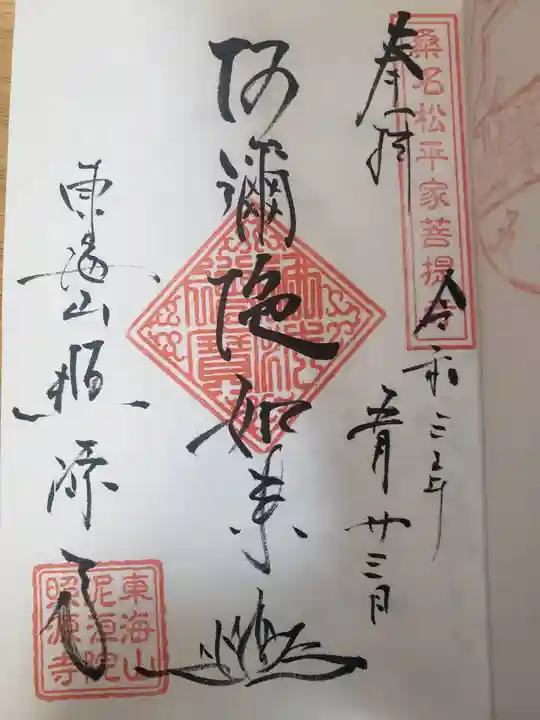 桑名松平家菩提寺
奉拝
令和三年
五月廿三日
阿彌陀如来
佛法僧寳
東海山照源寺
東海山
泥洹院
照源寺